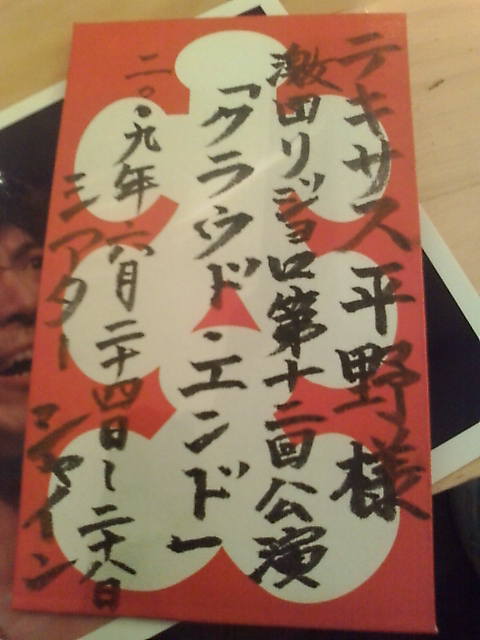 テキサス平野様
激団リジョロ第十二回公演
「クラウド・エンド」
二〇・九年六月二十四日~二十八日
シアターシャイン